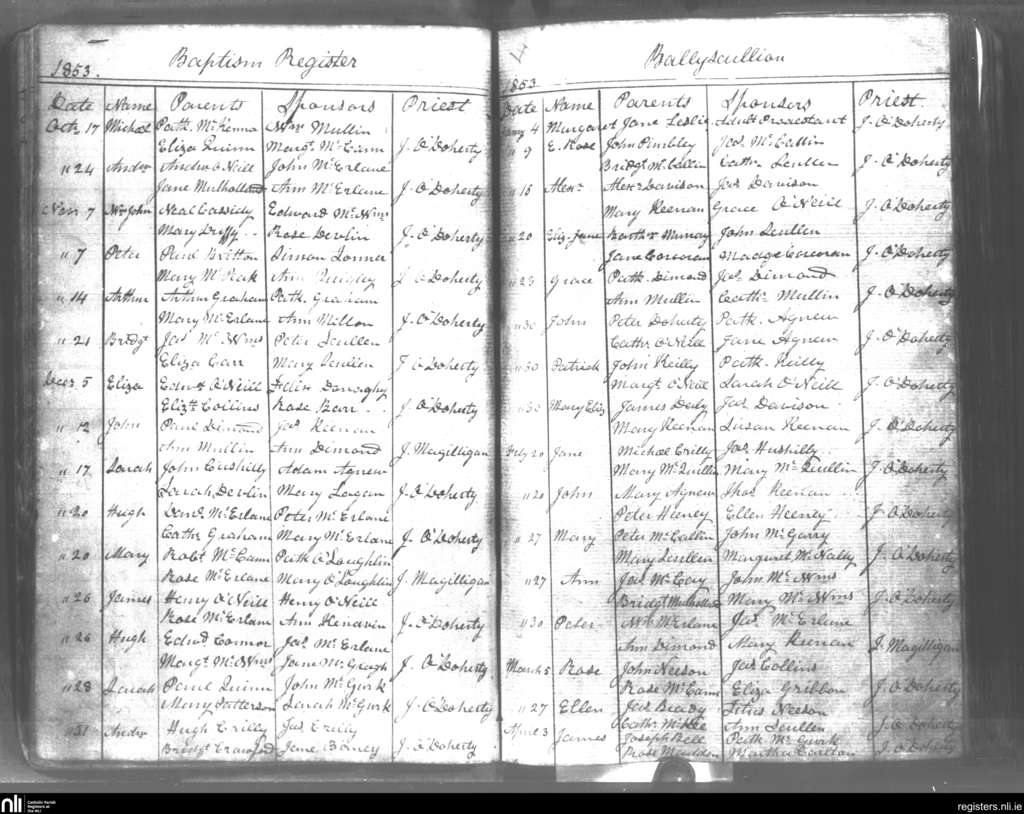 1853. Baptism Register
Date Name Parents Sponsors Priest
Octr 17 Michael Patk. McKenna Wm Mullin
Eliza Quinn Margt. McCann J. O'Doherty
" 24 Andw Andw O'Neill John McErlane
Jane Mulholland Ann McErlane J. O'Doherty
Novr 7 Wm John Neal Cassidy Edward McWms
Mary Duffy Rose Devlin J. O'Doherty
" 7 Peter Britton Simon
Mary McPeak Ann Quigley J. O'Doherty
" 14 Arthur Arthur Graham Patk. Graham
Mary McErlane Ann J. O'Doherty
" 21 Bridgt Jas McWms Peter Scullen
Eliza Carr Mary Scullen J. O'Doherty
Decr 5 Eliza Edwd O'Neill Felix Darraghy
Elizth Collins Rose Barr J. O'Doherty
" 12 John Dimond Jas Keenan
Ann Mullin Ann Dimond J. Magilligan
" 17 Sarah John Cushilly Adam Agnew
Sarah Devlin Mary Logan J. O'Doherty
" 20 Hugh McErlane Peter McErlane
Cathr Graham Mary McErlane J. O'Doherty
" 20 Mary Robt. McCann Patk O'Loughlin
Rose McErlane Mary O'Loughlin J. Magilligan
" 26 James Henry O'Neill Henry O'Neill
Rose McErlane Ann J. O'Doherty
" 26 Hugh Edwd Connor Jas. McErlane
Margt. McWms Jane McGeagh J. O'Doherty
" 28 Sarah Quinn John McGurk
Mary Patterson Sarah McGurk J. O'Doherty
" 31 Andw Hugh Crilly Jas Crilly
Bridgt Crawford Jane J. O'Doherty
1853 Ballyscullion
Date Name Parents Sponsors Priest.
4 Margaret Jane Leslie Adult Protestant J. O'Doherty
" 9 E. Rose John Pimbley Jas. McCallin
Bridgt McCallin Cathr Scullen J. O'Doherty
" 16 Alexr Alexr Davison Jas Davison
Mary Keenan Grace O'Neill J. O'Doherty
" 20 Eliz. Jane Barthw Murray John Scullen
Jane Corcoran Madge Corcoran J. O'Doherty
" 23 Grace Patk. Dimond Jas. Dimond
Ann Mullin Cathr. Mullin J. O'Doherty
" 30 John Peter Doherty Patk. Agnew
Cathr O'Neill Jane Agnew J. O'Doherty
" 30 Patrick John Reilly Patk. Reilly
Margt O'Neill Sarah O'Neill J. O'Doherty
" 30 Mary Eliz James Jas Davison
Mary Keenan Susan Keenan J. O'Doherty
20 Jane Michael Crilly Jas. Hushilly
Mary McQuillin Mary McQuillin J. O'Doherty
" 20 John Mary Agnew Thos Keenan
Peter Heeney Ellen Heeney J. O'Doherty
" 27 Mary Peter McCallin John McGarry
Mary Scullen Margaret McNally J. O'Doherty
" 27 Ann Jas. John McWms
Bridgt Mulholland Mary McWms J. O'Doherty
" 30 Peter Wm McErlane Jas. McErlane
Ann Dimond Mary Keenan J. Magilligan
March 5 Rose John Neeson Jas Collins
Rose McCann Eliza Gribbon J. O'Doherty
" 27 Ellen Jas. Titus Neeson
Cathr Ann Scullen J. O'Doherty
April 3 James Joseph Patk McGurk
Rose Martha Carlton J. O'Doherty
nli Catholic Parish
Registers at
the NLI
registers.nli.ie